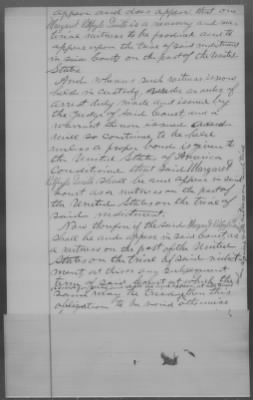 appear and does appear that one
is a necessary and ma-
terial witness to be produced and to
appear upon the trial of said indictment
in said Court on the part of the United
States
And whereas such witness is now
held in custody, under an order of
arrest duly made and issued by
the Judge of said Court and a
warrant thereon issued and
will so continue to be held
unless a proper bond is given to
the United States of America
Conditioned that said Margaret
shall be and appear in said
Court as a witness on the part of
the United States on the trial of
said indictment.
Now therefore if the said
shall be and appear in said Court as
a witness on the part of the United
States on the trial of said indict
ment at this or any subsequent
term of said Court at which the
same may be tried, then this
obligation to be void otherwise